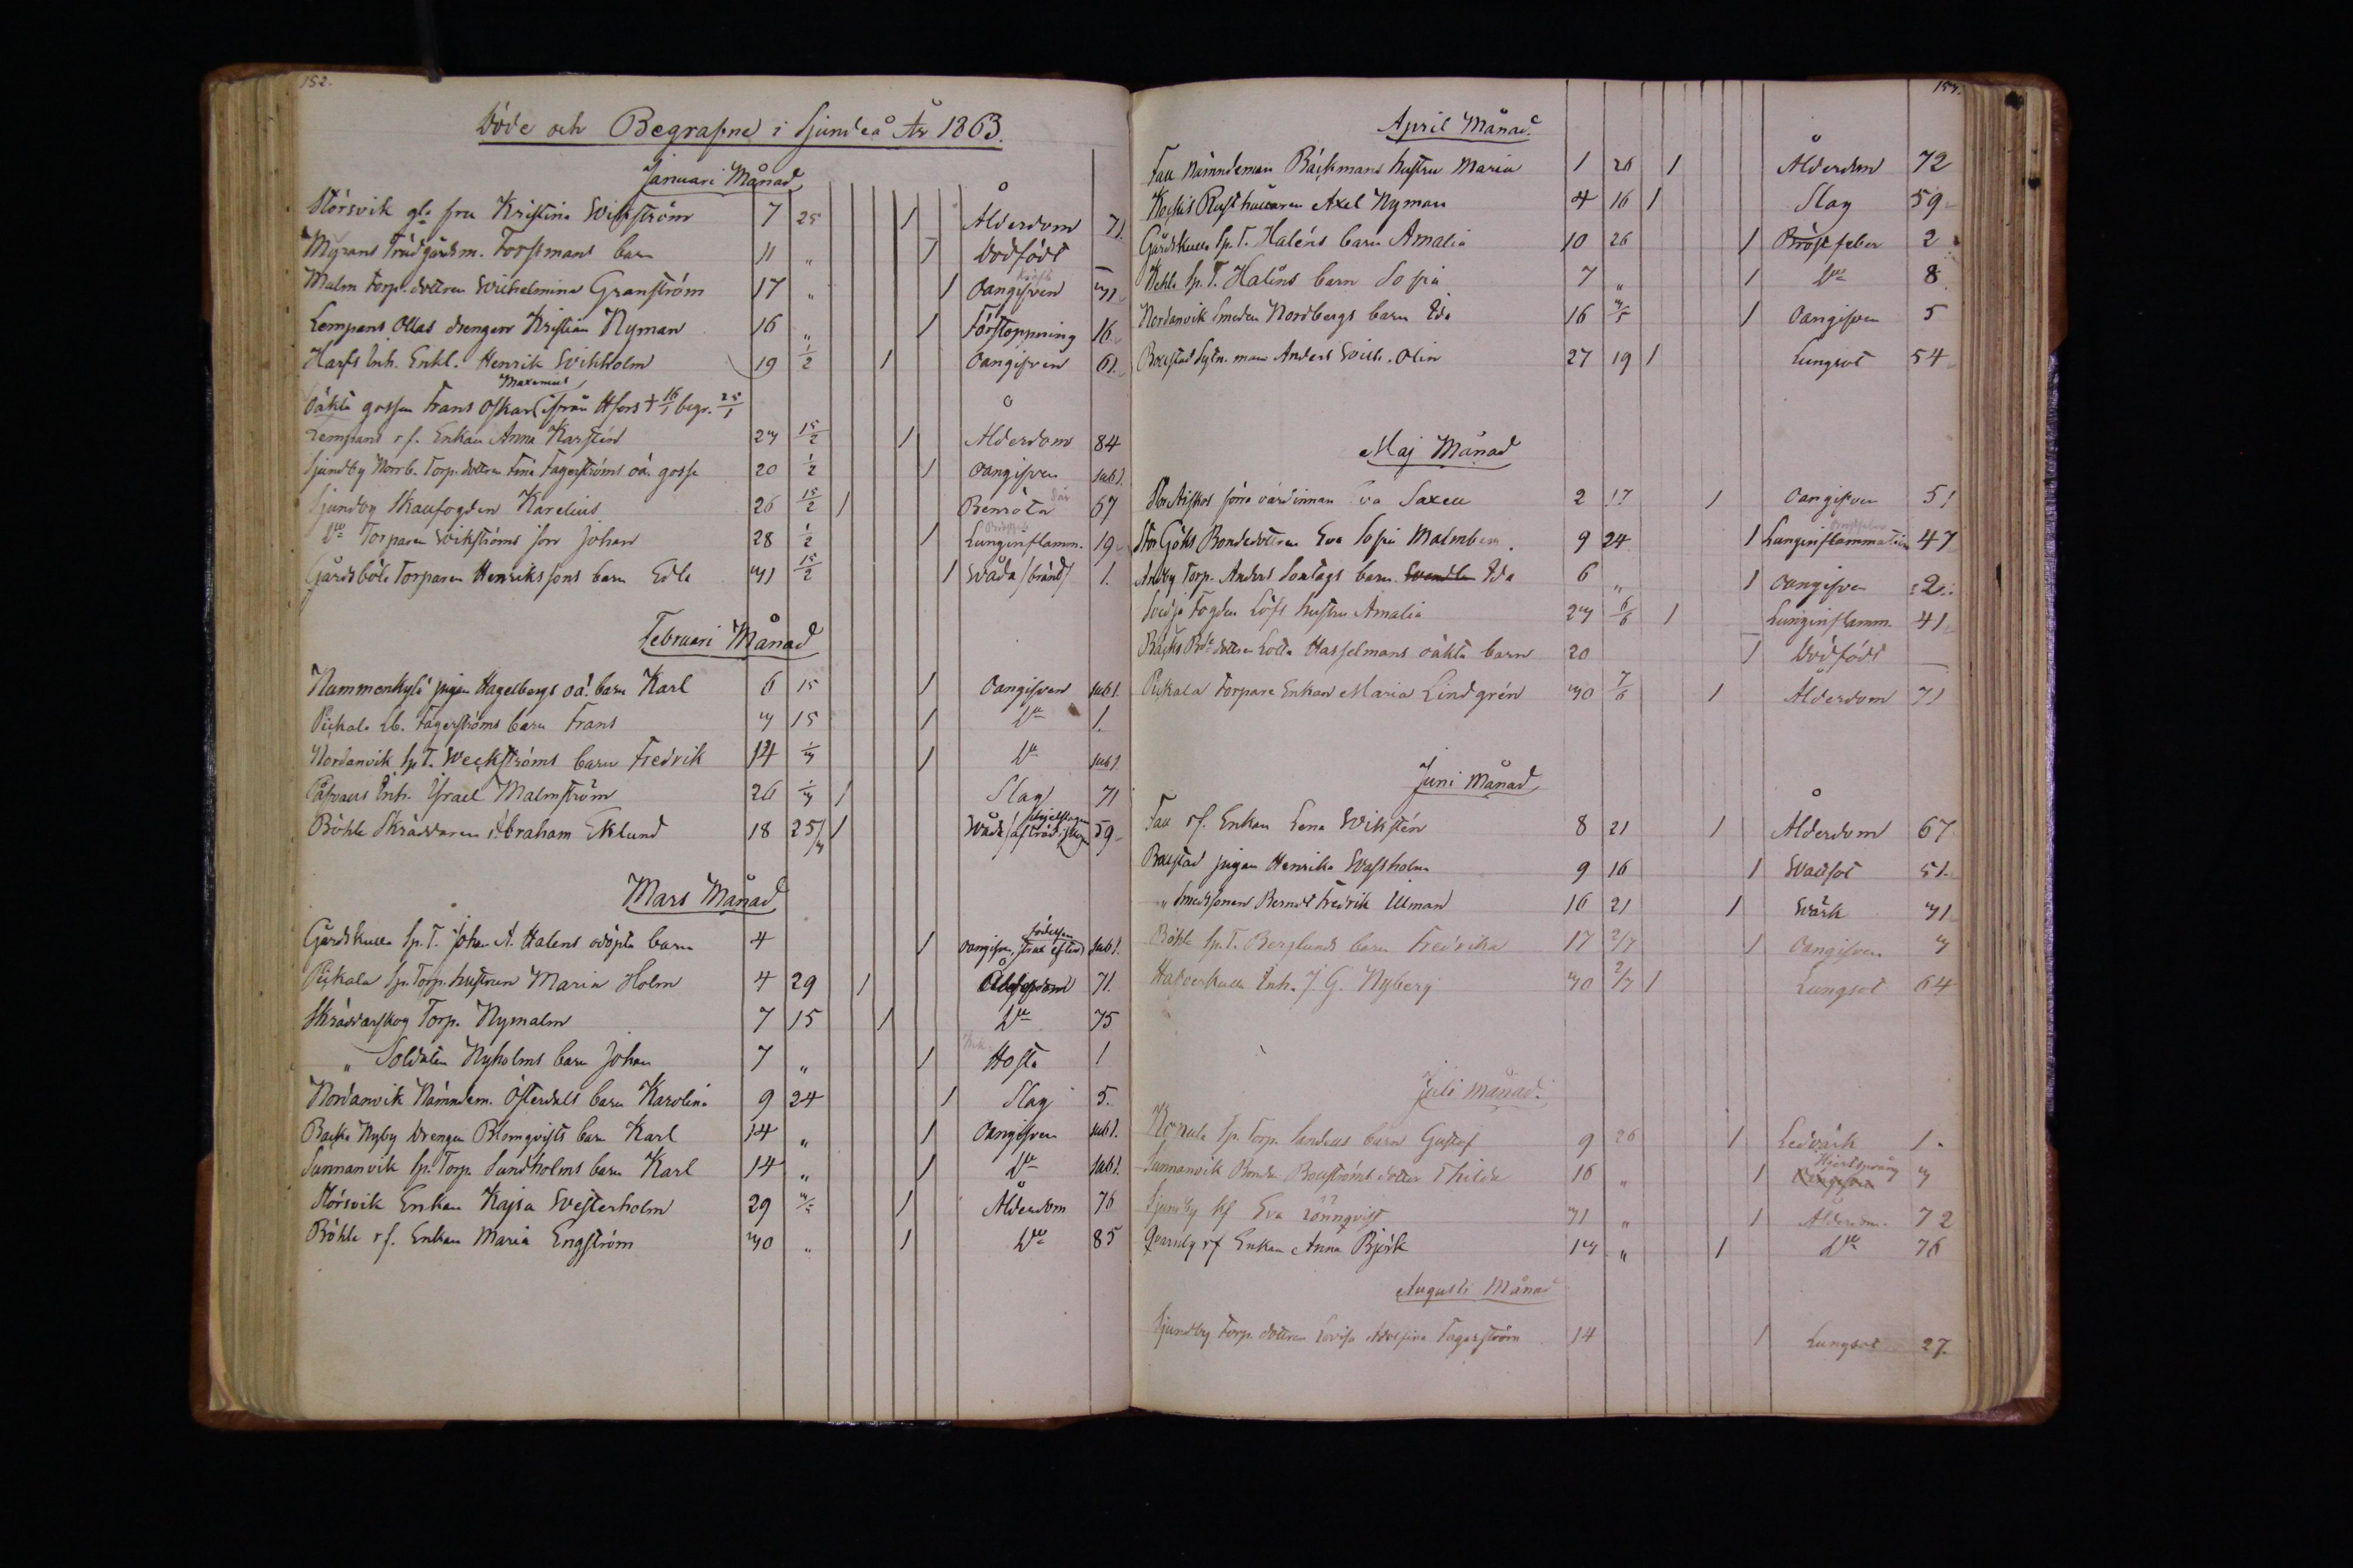 152.
Döde och Begrafne i Sjundeå År 1863.
Januari Månad
Störsvik gla fru Kristina Wikström 7 25 1 Ålderdom 71.
Myrans Trädgårdsm. Forssmans barn 11 „ 1 Dödfödt —
Malm Torp. dottren Wilhelmina Granström 17 „ 1 Oangifven
Lempans Ollas drengen Kristian Nyman 16 „ 1 Förstoppning 16.
Harfs Inh. Enkl. Henrik Wikholm 19 1/2 1 Oangifven 61.
Maximus
Oäkta gossen Frans Oskar ifrån Hfors + 16/1 begr. 25/1
Lempans rf. Enkan Anna Karstén 15/2 1 Ålderdom 84
Sjundby Norrb. Torp. dottren Fina Fagerströms oä. gosse 20 1/2 1 Oangifven sub 1.
Sjundby Skaufogden Karelius 26 15/2 1 Benröta 67
Do Torparen Wikströms son Johan 28 1/2 1 Lunginflamm. 19.
Gårdsböle Torparen Henrikssons barn Edla 15/2 1 Wåda /bränd/ 1.
Februari Månad
Nummenkylä pigan Hagelbergs oä. barn Karl 6 15 1 Oangifven sub 1.
Pickala Fagerströms barn Frans 15 1 Do 1.
Nordanvik Sp. T. Weckströms barn Fredrik 14 1 Do sub 1.
Påfvans Inh. Israel Malmström 26 1 Slag 71
Böhle Skräddaren Abraham Eklund 18 25/ 1 Wåda 59.
Mars Månad
Gårdskulla Sp. T. Johan A. Halens odöpta barn 4 1 Oangifven, strax efter födelsen sub 1.
Pickala Sp. Torp. hustrun Maria Holm 4 29 1 Ålderdom 71.
Skräddarskog Torp. Nymalm 7 15 1 Do 75
„ Soldaten Nyholms barn Johan 7 „ 1 Hosta 1
Nordanvik Nämndem. Österdals barn Karolina 9 24 1 Slag 5.
Backa Nyby Drengen Blomqvists barn Karl 14 „ 1 Oangifven sub 1.
Sunnanvik Sp. Torp. Sundholms barn Karl 14 „ 1 Do sub 1.
Störsvik Enkan Kajsa Westerholm 29 1 Ålderdom 76
Böhle rf. Enkan Maria Engström „ 1 Do 85
April Månad.
Tau Nämndeman Bäckmans hustru Maria 1 26 1 Ålderdom 72
Kockis Rusthållaren Axel Nyman 4 16 1 Slag 59.
Gårdskulla Sp. T. Haléns barn Amalia 10 26 1 Bröstfeber 2
Wehla Sp. T. Haléns barn Sofia 7 „ 1 Do 8.
Nordanvik Smeden Nordbergs barn Ida 16 1 Oangifven 5
Boxstad Sytn. man Anders Wilh. Olin 27 19 1 Lungsot 54
Maj Månad
förra värdinnan Eva Saxell 2 17 1 Oangifven 51
Stor Göks Bondedottren Eva Sofia Malmberg. 9 24 1 Lunginflammation 47
Andby Torp. Anders Sontags barn Ida 6 „ 1 Oangifven 2.
Svedja Fogden Löfs hustru Amalia 6/6 1 Lunginflamm. 41
Bäcks Bde dottren Lotta Hasselmans oäkta barn 20 1 Dödfödt —
Pickala Torpare Enkan Maria Lindgrén 7/6 1 Ålderdom 71
Juni Månad
Tau rf. Enkan Lena Wikstén 8 21 1 Ålderdom 67
Boxstad pigan Henrika Wassholm 9 16 1 Wattsot 51.
„ Smedssonen Berndt Fredrik Ullman 16 21 1 Wärk
Böhle Sp. T. Berglunds barn Fredrika 17 2/7 1 Oangifven
Halverskulla Inh. J. G. Nyberg 2/7 1 Lungsot 64
Juli Månad.
Sp. Torp. barn Gustaf 9 26 1 Ledvärk 1.
Sunnanvik Bonden Boxströms dotter Thilda 16 „ 1 Hjertsprång
Sjundby Eva Lönnqvist „ 1 Ålderdom. 72
Qvarnby rf Enkan Anna Björk „ 1 Do 76
Augusti Månad
Sjundby Torp. dottren Lovisa Adolfina Fagerström 14 1 Lungsot 27.